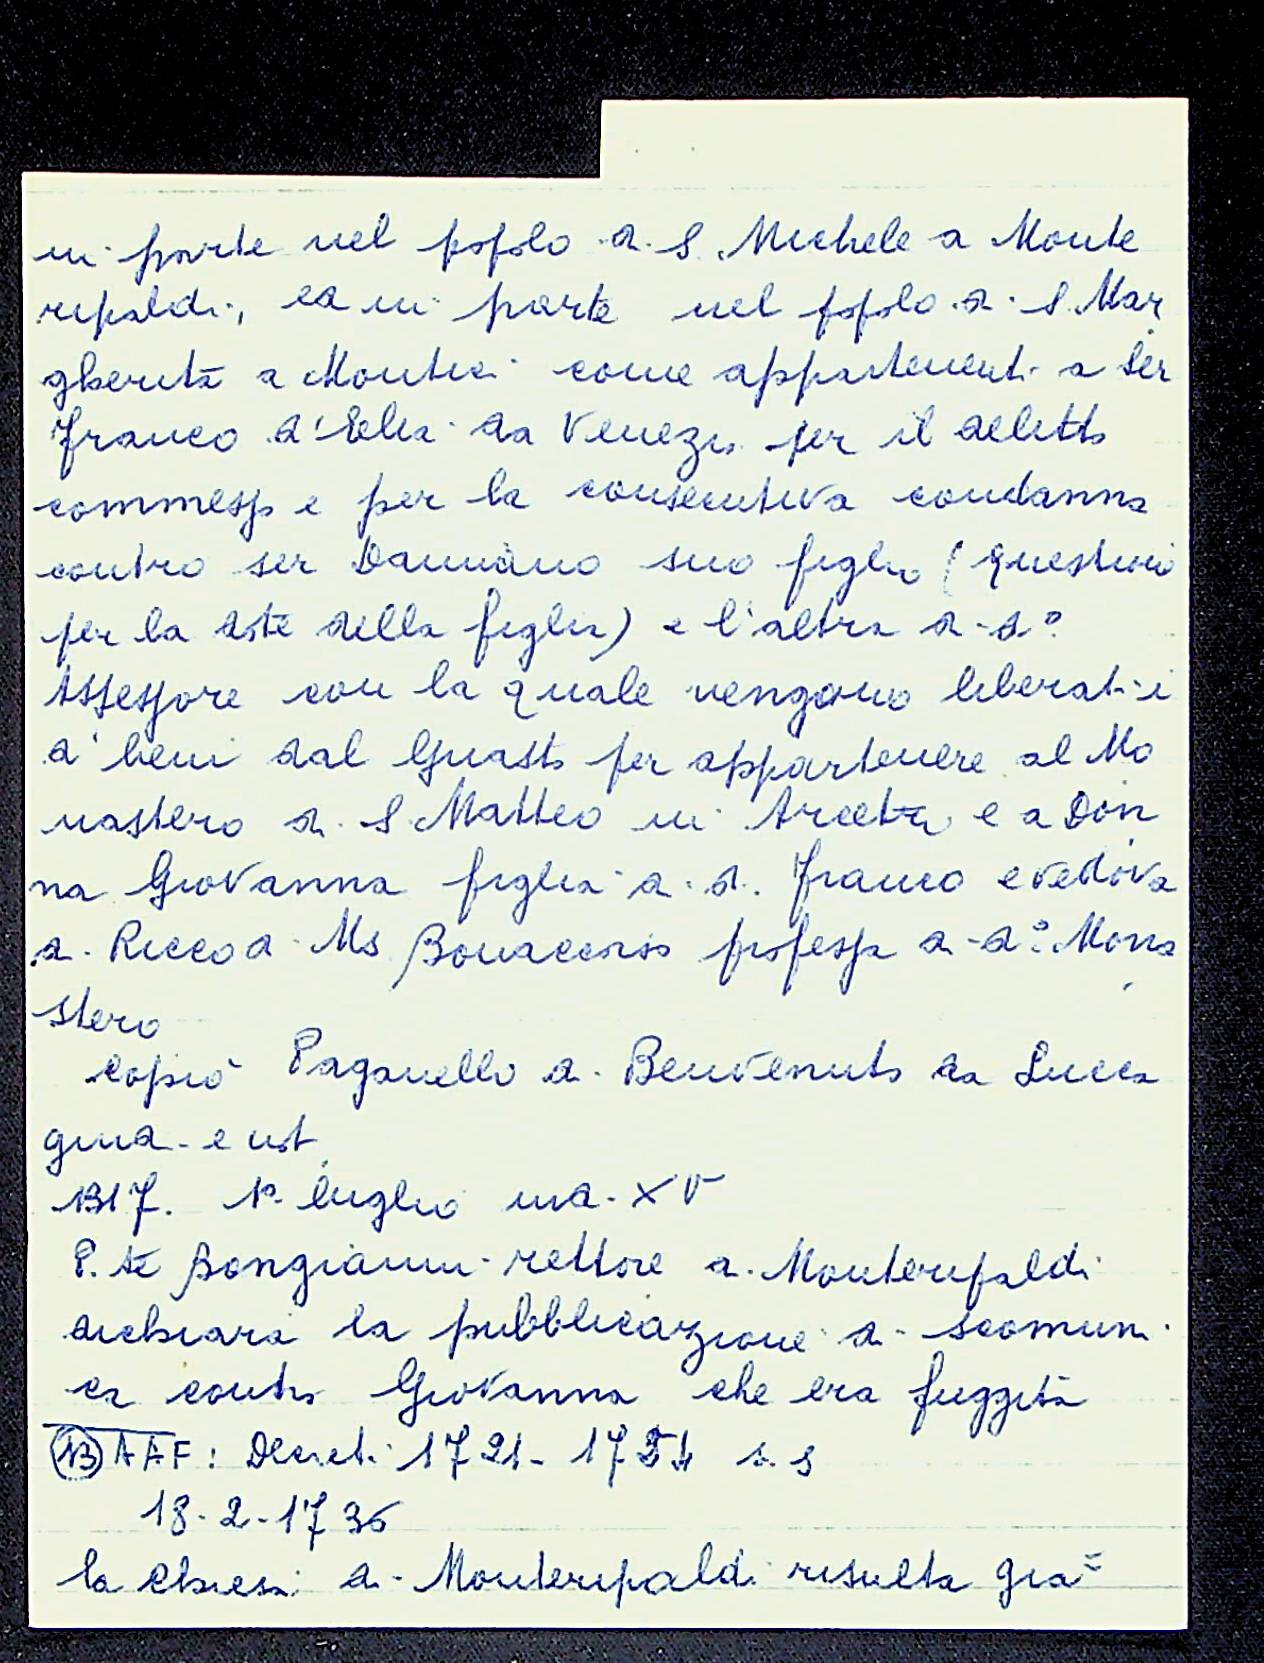 in parte nel popolo di S. Michele a Monte
ripaldi, ed in parte nel popolo di S. Mar
gherita a Montici come appartenenti a Ser
Franco d'Elia da Venezia per il delitto
commesso e per la consecutiva condanna
contro ser Damiano suo figlio (questioni
per la dote della figlia) e l'altra di do
Assessore con la quale vengono liberati i
di beni dal Guasto per appartenere al Mo
nastero di S. Matteo in Arcetri e a Don
na Giovanna figlia di d. Franco e vedova
di Ricco di Ms Bonaccorso professa di do Mona
stero
copiò Paganello di Benvenuto da Lucca
giud. e not
1317. 1º luglio ind. XV
P. te Bongianni rettore di Monteripaldi
dichiara la pubblicazione di scomuni
ca contro Giovanna che era fuggita
(13) AAF: Decreti 1721-
18-2-1736
la chiesa di Monteripaldi risulta già